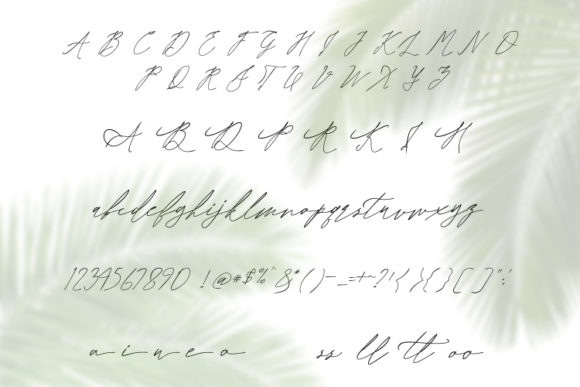 A B C D E F G H I J K L M N O
P Q R S T U V W X Y Z
A B D P R K I H
abcdefghijklmnopqrstuvwxyz
1234567890 !@#$%^&*()-_=+~?'/{}[]":
a i u e o ss ll tt oo